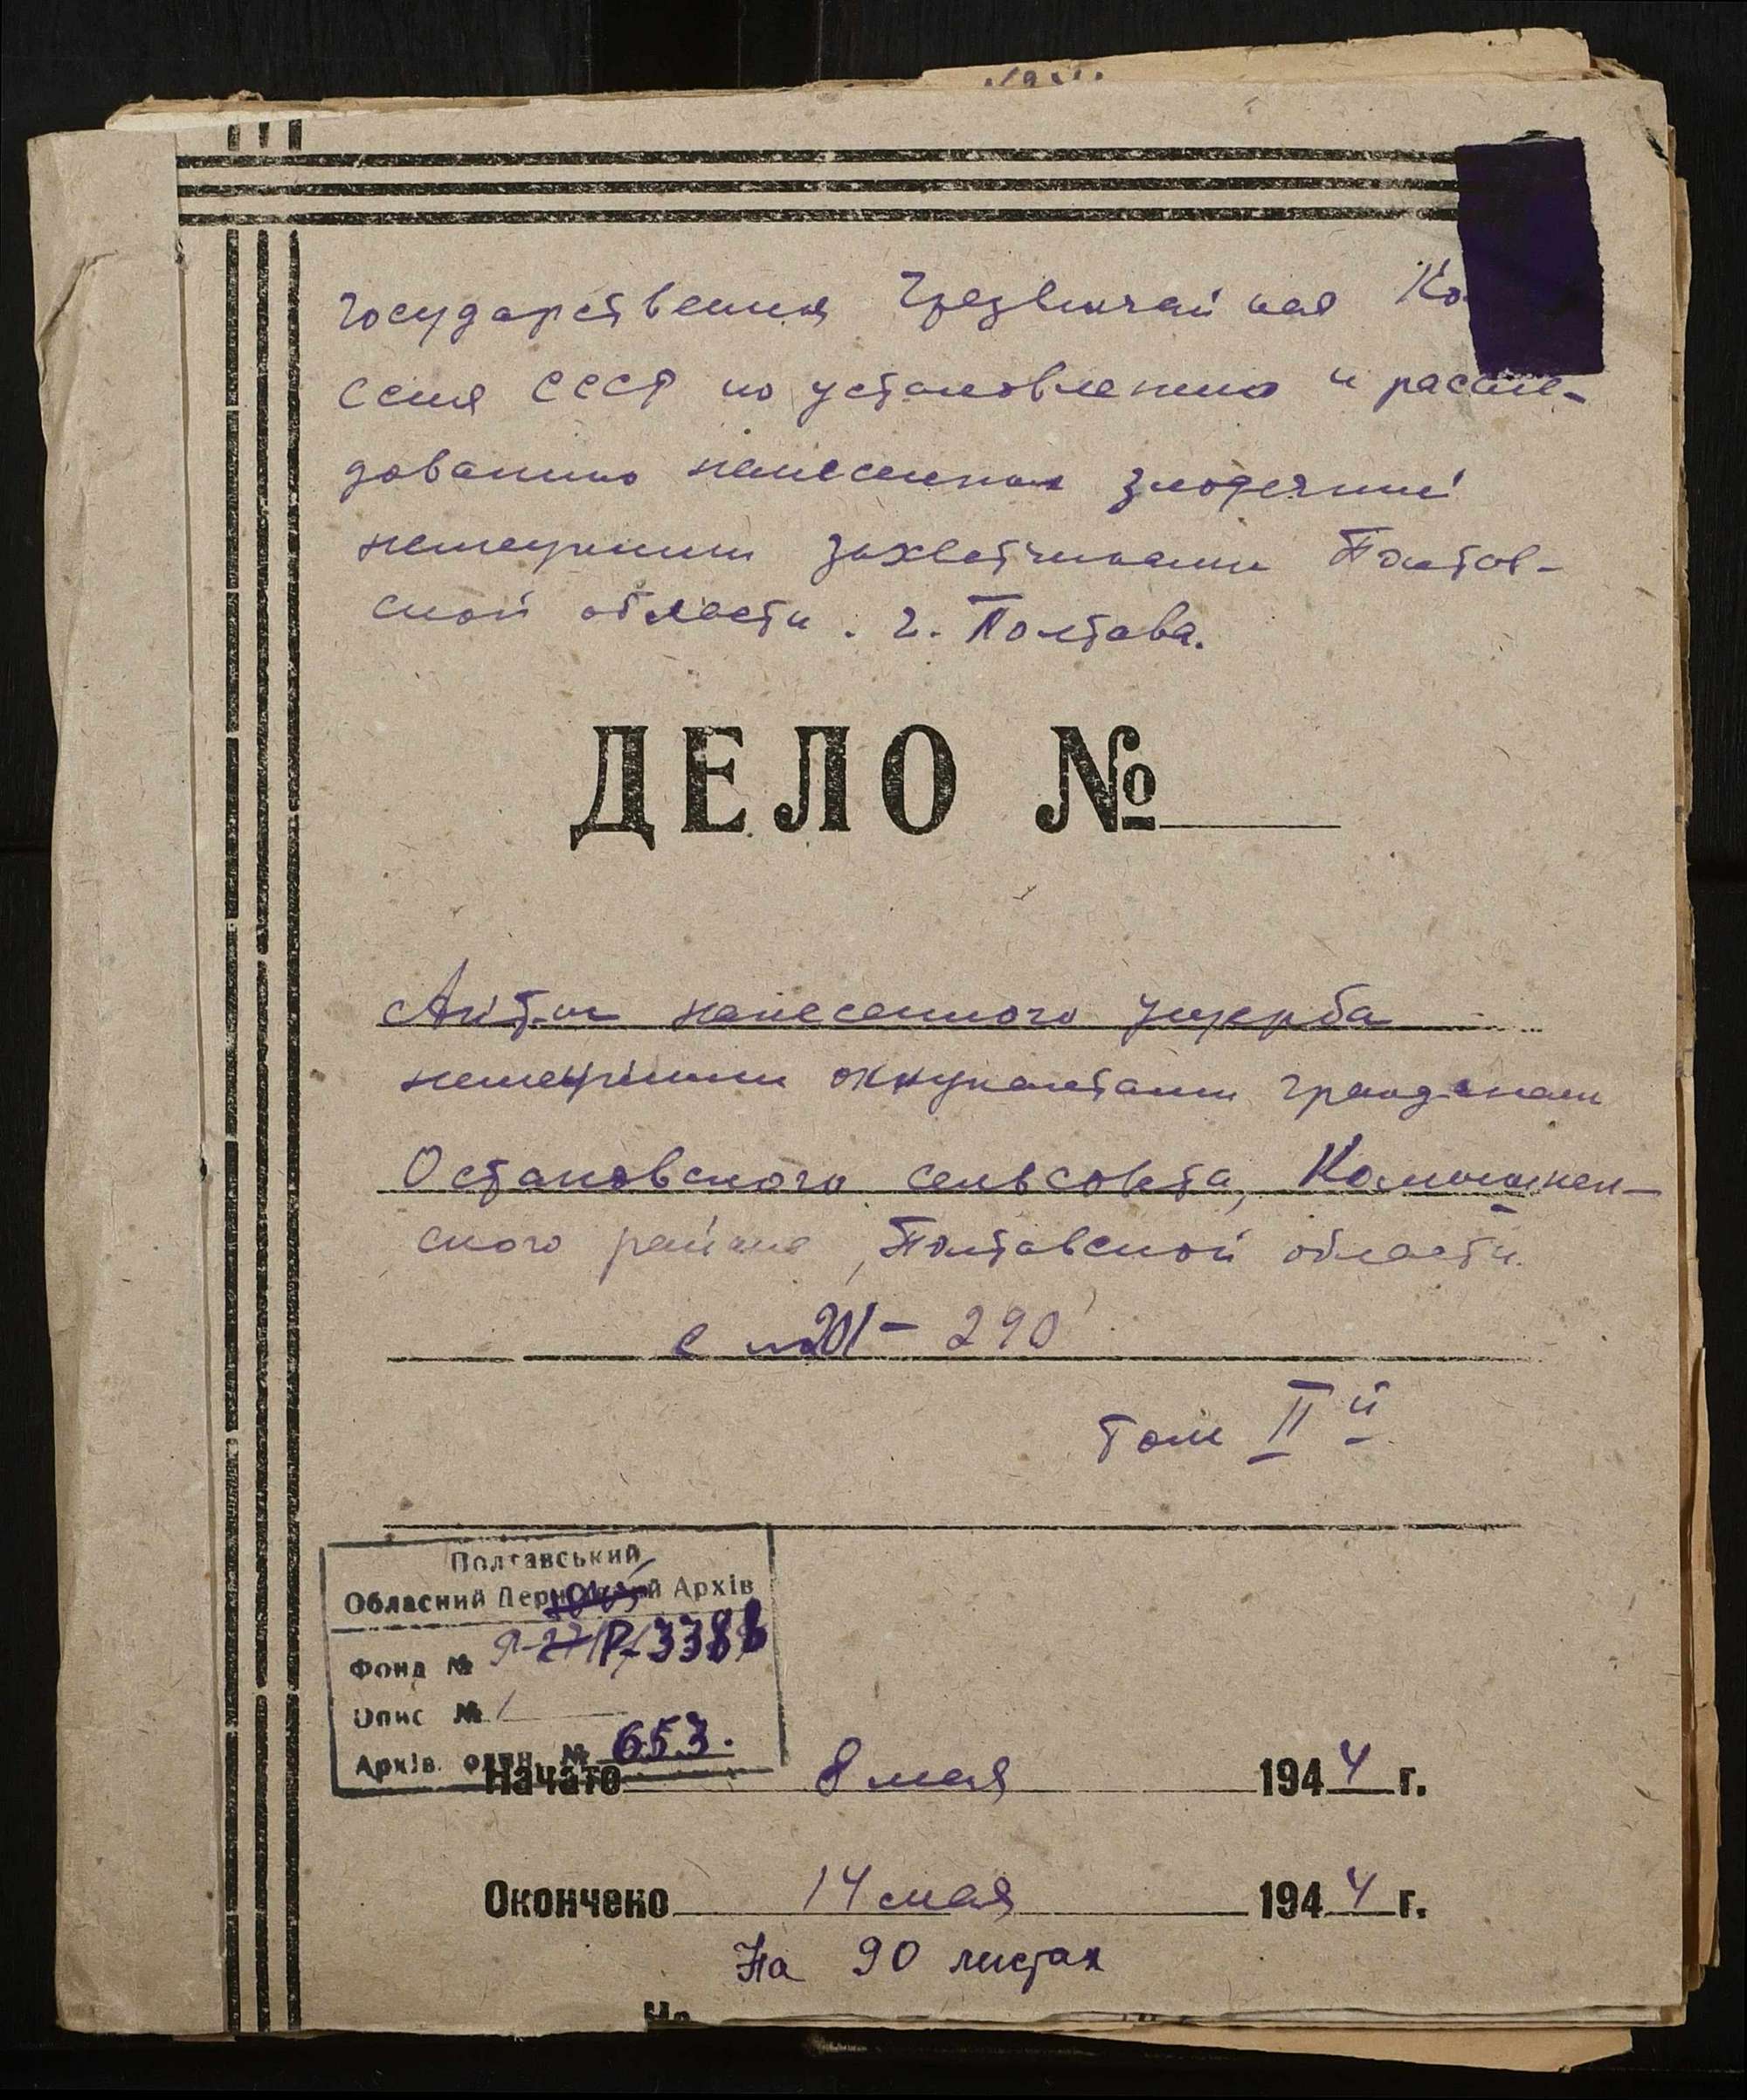 Государственная Чрезвычайная Ко
ссия СССР по установлению и рассле-
дованию нанесенных злодеяний
немецкими захватчиками Полтав-
ской области. г. Полтава.
ДЕЛО №
Акты нанесенного ущерба
немецкими оккупантами гражданам
Остаповского сельсовета, Комышнен-
ского района, Полтавской области
с № 201 - 290
Том IIй
Полтавський
Обласний Державний Архів
Фонд № Р-3388
Опис № 1
Архів. один. № 653.
Начато 8 мая 1944 г.
Окончено 14 мая 1944 г.
На 90 листах
На